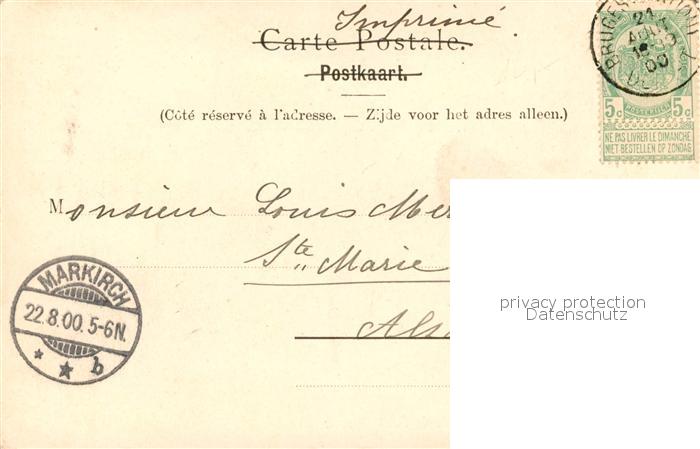 Imprimé
Carte Postale.
Postkaart.
(Côté réservé à l'adresse. — Zijde voor het adres alleen.)
21
AOUT
00
5c 5c
NE PAS LIVRER LE DIMANCHE
NIET BESTELLEN OP ZONDAG
Monsieur Louis
Ste Marie
MARKIRCH
22.8.00. 5-6N.
b
privacy protection
Datenschutz